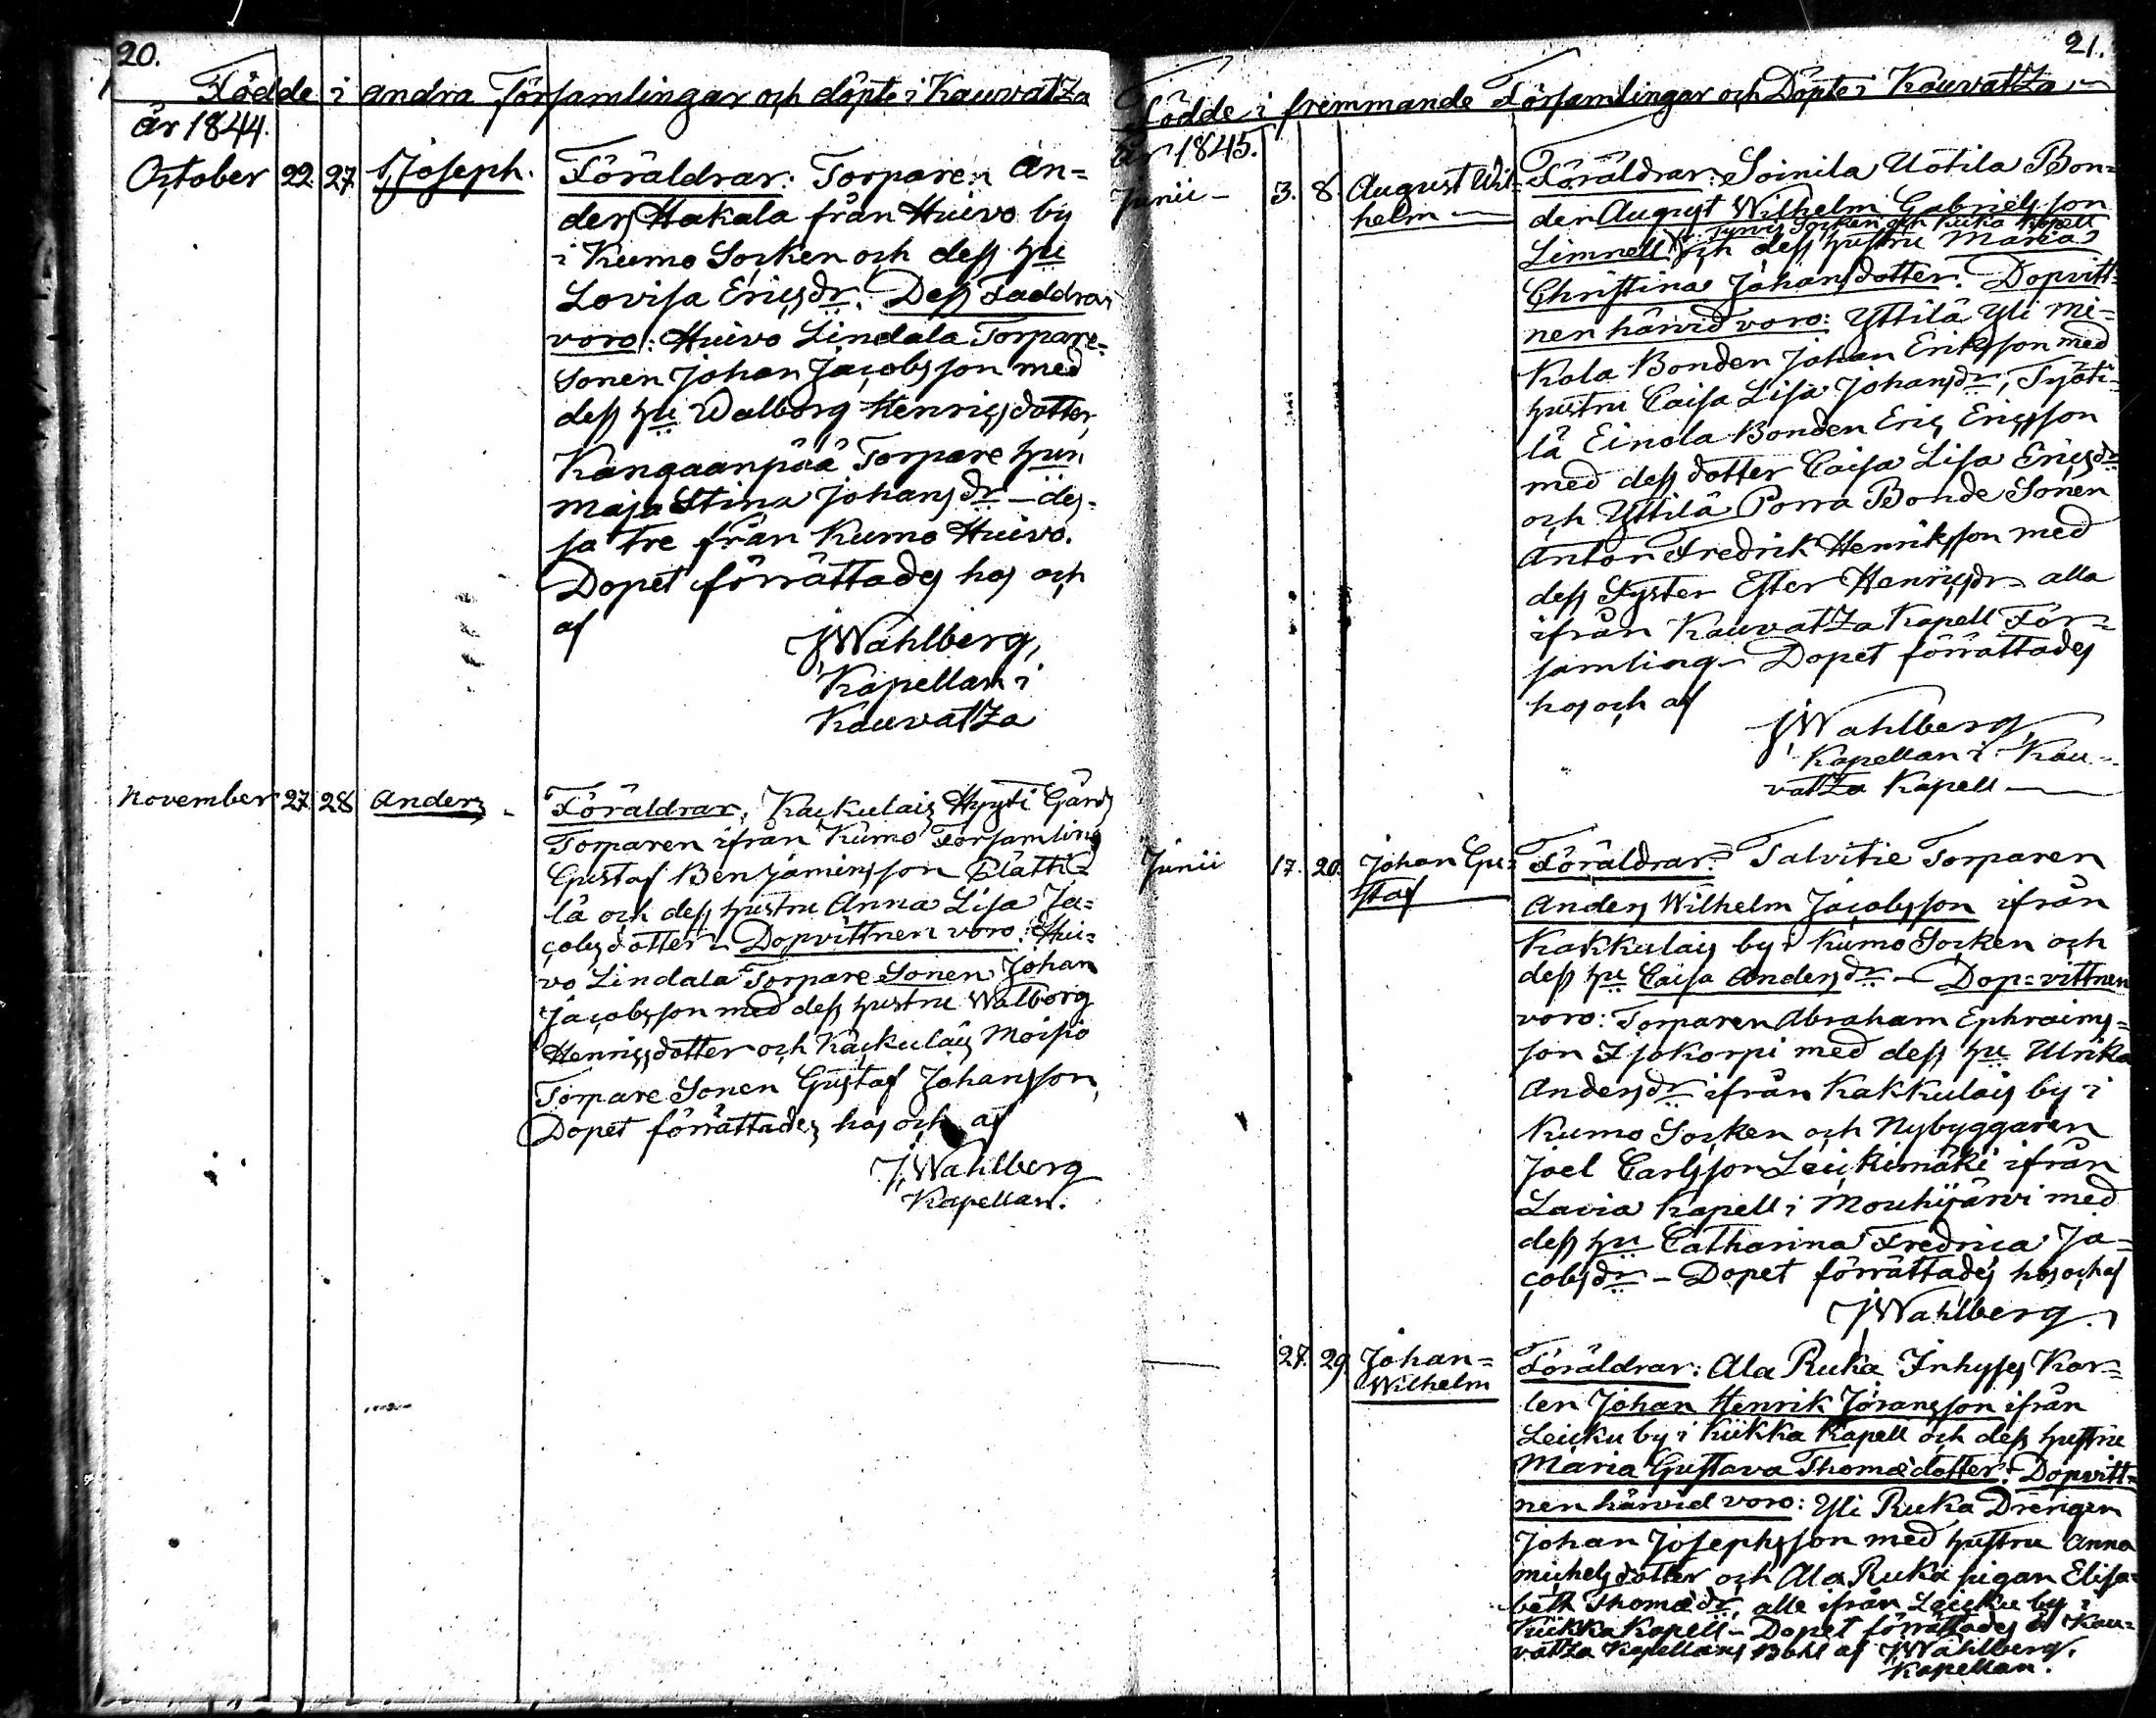 20.
Födde i andra Församlingar och döpte i Kauvatza
år 1844.
October 22. 27. Joseph.
Föräldrar: Torparen An=
ders Hakala från Huivo by
i Kumo Socken och dess hu
Lovisa Ericsdr. Dess Faddrar
voro: Huivo Lindala Torpare=
Sonen Johan Jacobsson med
dess hu Walborg Henricsdotter,
Kangaanpää Torpare hun
Maja Stina Johansdr – des=
sa tre från Kumo Huivo.
Dopet förrättades hos och
af
JWahlberg,
Kapellan i
Kauvatza
November 27. 28 Anders
Föräldrar, Kackulais Hyyti Gårds
Torparen ifrån Kumo Församling
Gustaf Benjaminsson
lä och dess hustru Anna Lisa Ja=
cobsdotter. Dopvittnen voro: Hui=
vo Lindala Torpare Sonen Johan
Jacobsson med dess hustru Walborg
Henricsdotter och Kackulais Moisio
Torpare Sonen Gustaf Johansson,
Dopet förrättades hos och af
J.Wahlberg
Kapellan.
21.
Födde i fremmande Församlingar och Döpte i Kauvatza
År 1845.
Junii – 3. 8. August Wil=
helm
Föräldrar: Soinila Uotila Bon=
den August Wilhelm Gabrielsson
i Tyrvis Socken och Kiika Kapell
Limnell och dess hustru Maria
Christina Johansdotter. Dopvitt=
nen härvid voro: Yttilä Yli Mi=
kola Bonden Johan Eriksson med
hustru Caisa Lisa Johansdr, Työti=
lä Einola Bonden Eric Ericsson
med dess dotter Caisa Lisa Ericsdr
och Yttilä Porra Bonde Sonen
Anton Fredrik Henriksson med
dess Syster Ester Henricsdr – alla
ifrån Kauvatza Kapell För=
samling – Dopet förrättades
hos och af
JWahlberg
Kapellan i Kau=
vatza Kapell
Junii 17. 20. Johan Gu=
staf
Föräldrar: Talvitie Torparen
Anders Wilhelm Jacobsson ifrån
Kakkulais by i Kumo Socken och
dess hu Caisa Andersdr – Dop=vittnen
voro: Torparen Abraham Ephraims=
son Isokorpi med dess hu Ulrika
Andersdr ifrån Kakkulais by i
Kumo Socken och Nybyggaren
Joel Carlsson Leickimäki ifrån
Lavia Kapell i Mouhijärvi med
dess hu Catharina Fredrica Ja=
cobsdr – Dopet förrättades hos och af
JWahlberg.
27. 29. Johan=
Wilhelm
Föräldrar: Ala Ruka Inhyses Kar=
len Johan Henrik Jöransson ifrån
Leiku by i Kiikka Kapell och dess hustru
Maria Gustava Thomædotter. Dopvitt=
nen härvid voro: Yli Ruka Drängen
Johan Josephsson med hustru Anna
Michelsdotter och Ala Ruka pigan Elisa=
beth Thomædr, alle ifrån Leiku by i
Kiikka Kapell – Dopet förrättades å Kau=
vatza Kapellans Bohl af JWahlberg,
Kapellan.